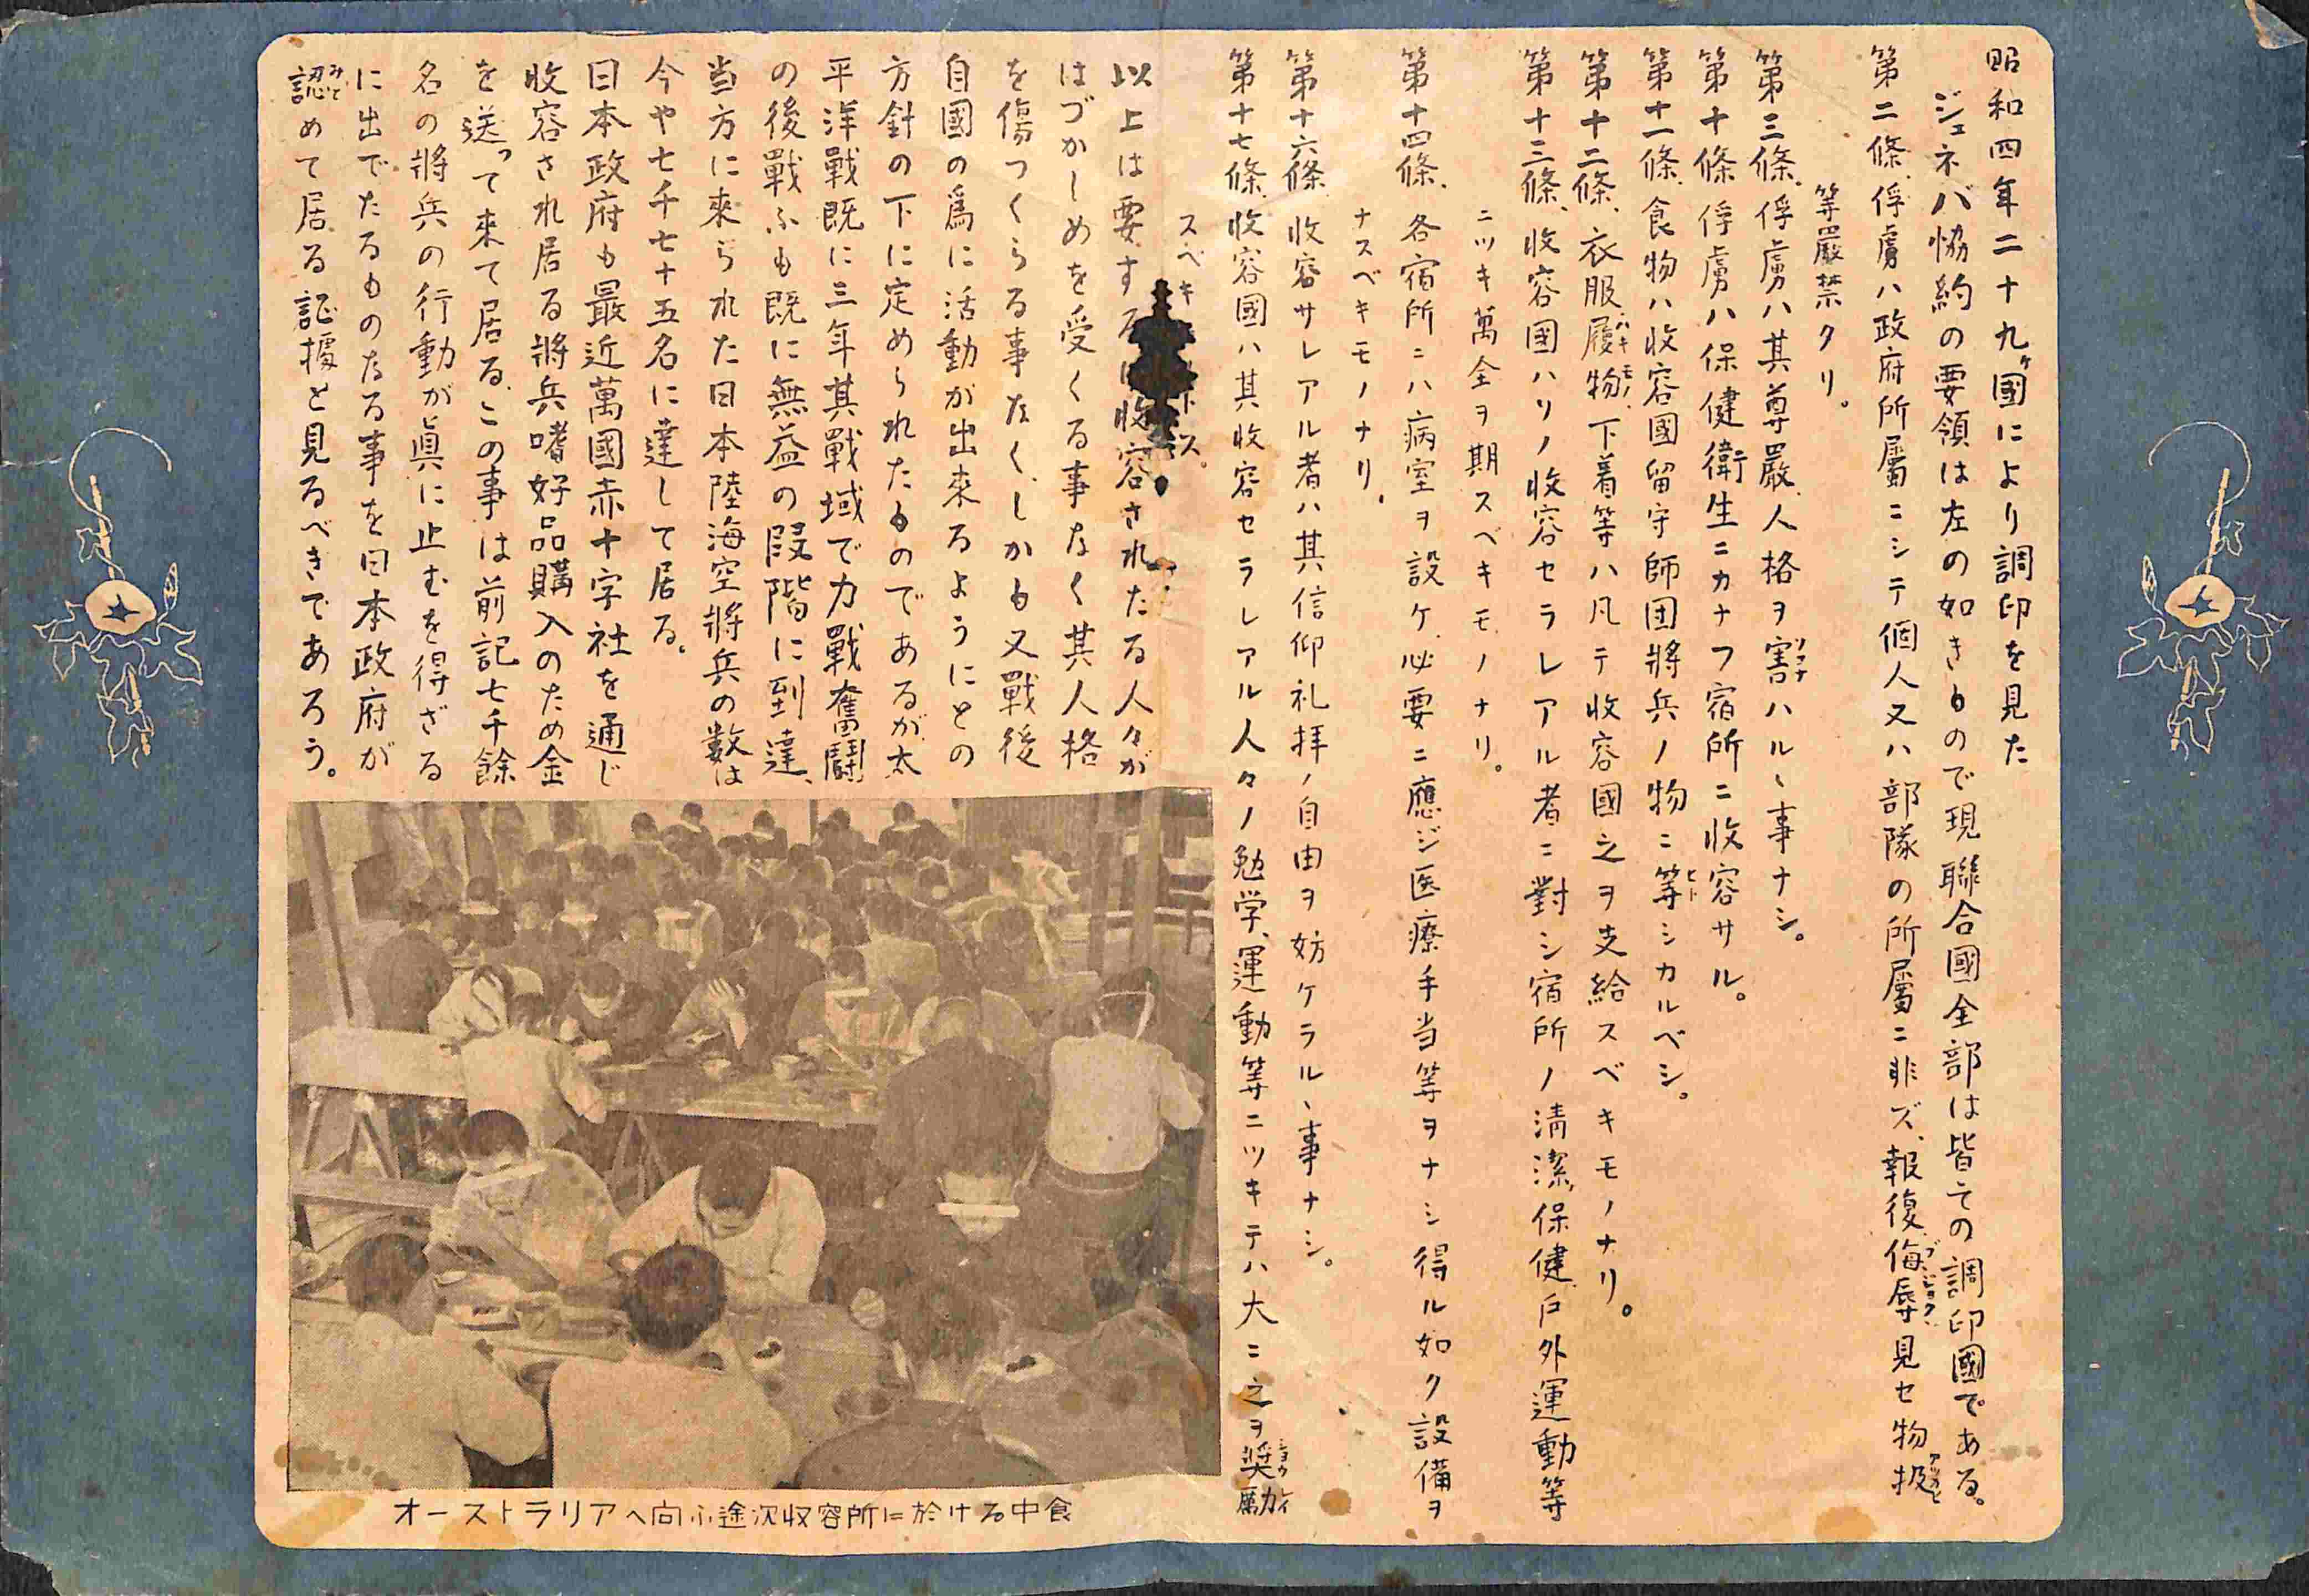 昭和四年二十九ヶ國により調印を見た
ジェネバ恊約の要領は左の如きもので現聯合國全部は皆その調印國である。
第二條、俘虜ハ政府所屬ニシテ個人又ハ部隊の所屬ニ非ズ、報復、侮辱、見セ物扱
等嚴禁クリ。
第三條、俘虜ハ其尊嚴、人格ヲ害ハルヽ事ナシ。
第十條、俘虜ハ保健衛生ニカナフ宿所ニ收容サル。
第十一條、食物ハ收容國留守師団將兵ノ物ニ等シカルベシ。
第十二條、衣服、履物、下着等ハ凡テ收容國之ヲ支給スベキモノナリ。
第十三條、收容國ハソノ收容セラレアル者ニ對シ宿所ノ清潔、保健、戸外運動等
ニツキ萬全ヲ期スベキモノナリ。
第十四條、各宿所ニハ病室ヲ設ケ、必要ニ應ジ医療手当等ヲナシ得ル如ク設備ヲ
ナスベキモノナリ。
第十六條、收容サレアル者ハ其信仰礼拝ノ自由ヲ妨ケラルヽ事ナシ。
第十七條、收容國ハ其收容セラレアル人々ノ勉学、運動等ニツキテハ大ニ之ヲ奨励
スベキ ス。
以上は要する 收容されたる人々が
はづかしめを受くる事なく其人格
を傷つくらる事なく、しかも又戰後
自國の爲に活動が出來るようにとの
方針の下に定められたものであるが、太
平洋戰既に三年其戰域で力戰奮鬪
の後戰ふも既に無益の段階に到達、
当方に來られた日本陸海空將兵の数は
今や七千七十五名に達して居る。
日本政府も最近萬國赤十字社を通じ
收容され居る將兵嗜好品購入のため金
を送って来て居る。この事は前記七千餘
名の將兵の行動が眞に止むを得ざる
に出でたるものなる事を日本政府が
認めて居る証據と見るべきであろう。
オーストラリアへ向ふ途次収容所に於ける中食